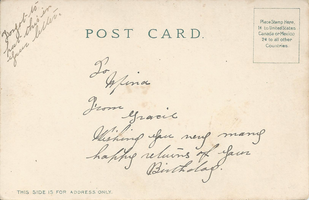 Forgot to
put this in
your letter.
POST CARD.
Place Stamp Here.
1¢ to United States
Canada or Mexico
2¢ to all other
Countries.
To
Mina
From
Gracie
Wishing you very many
happy returns of your
Birthday.
THIS SIDE IS FOR ADDRESS ONLY.